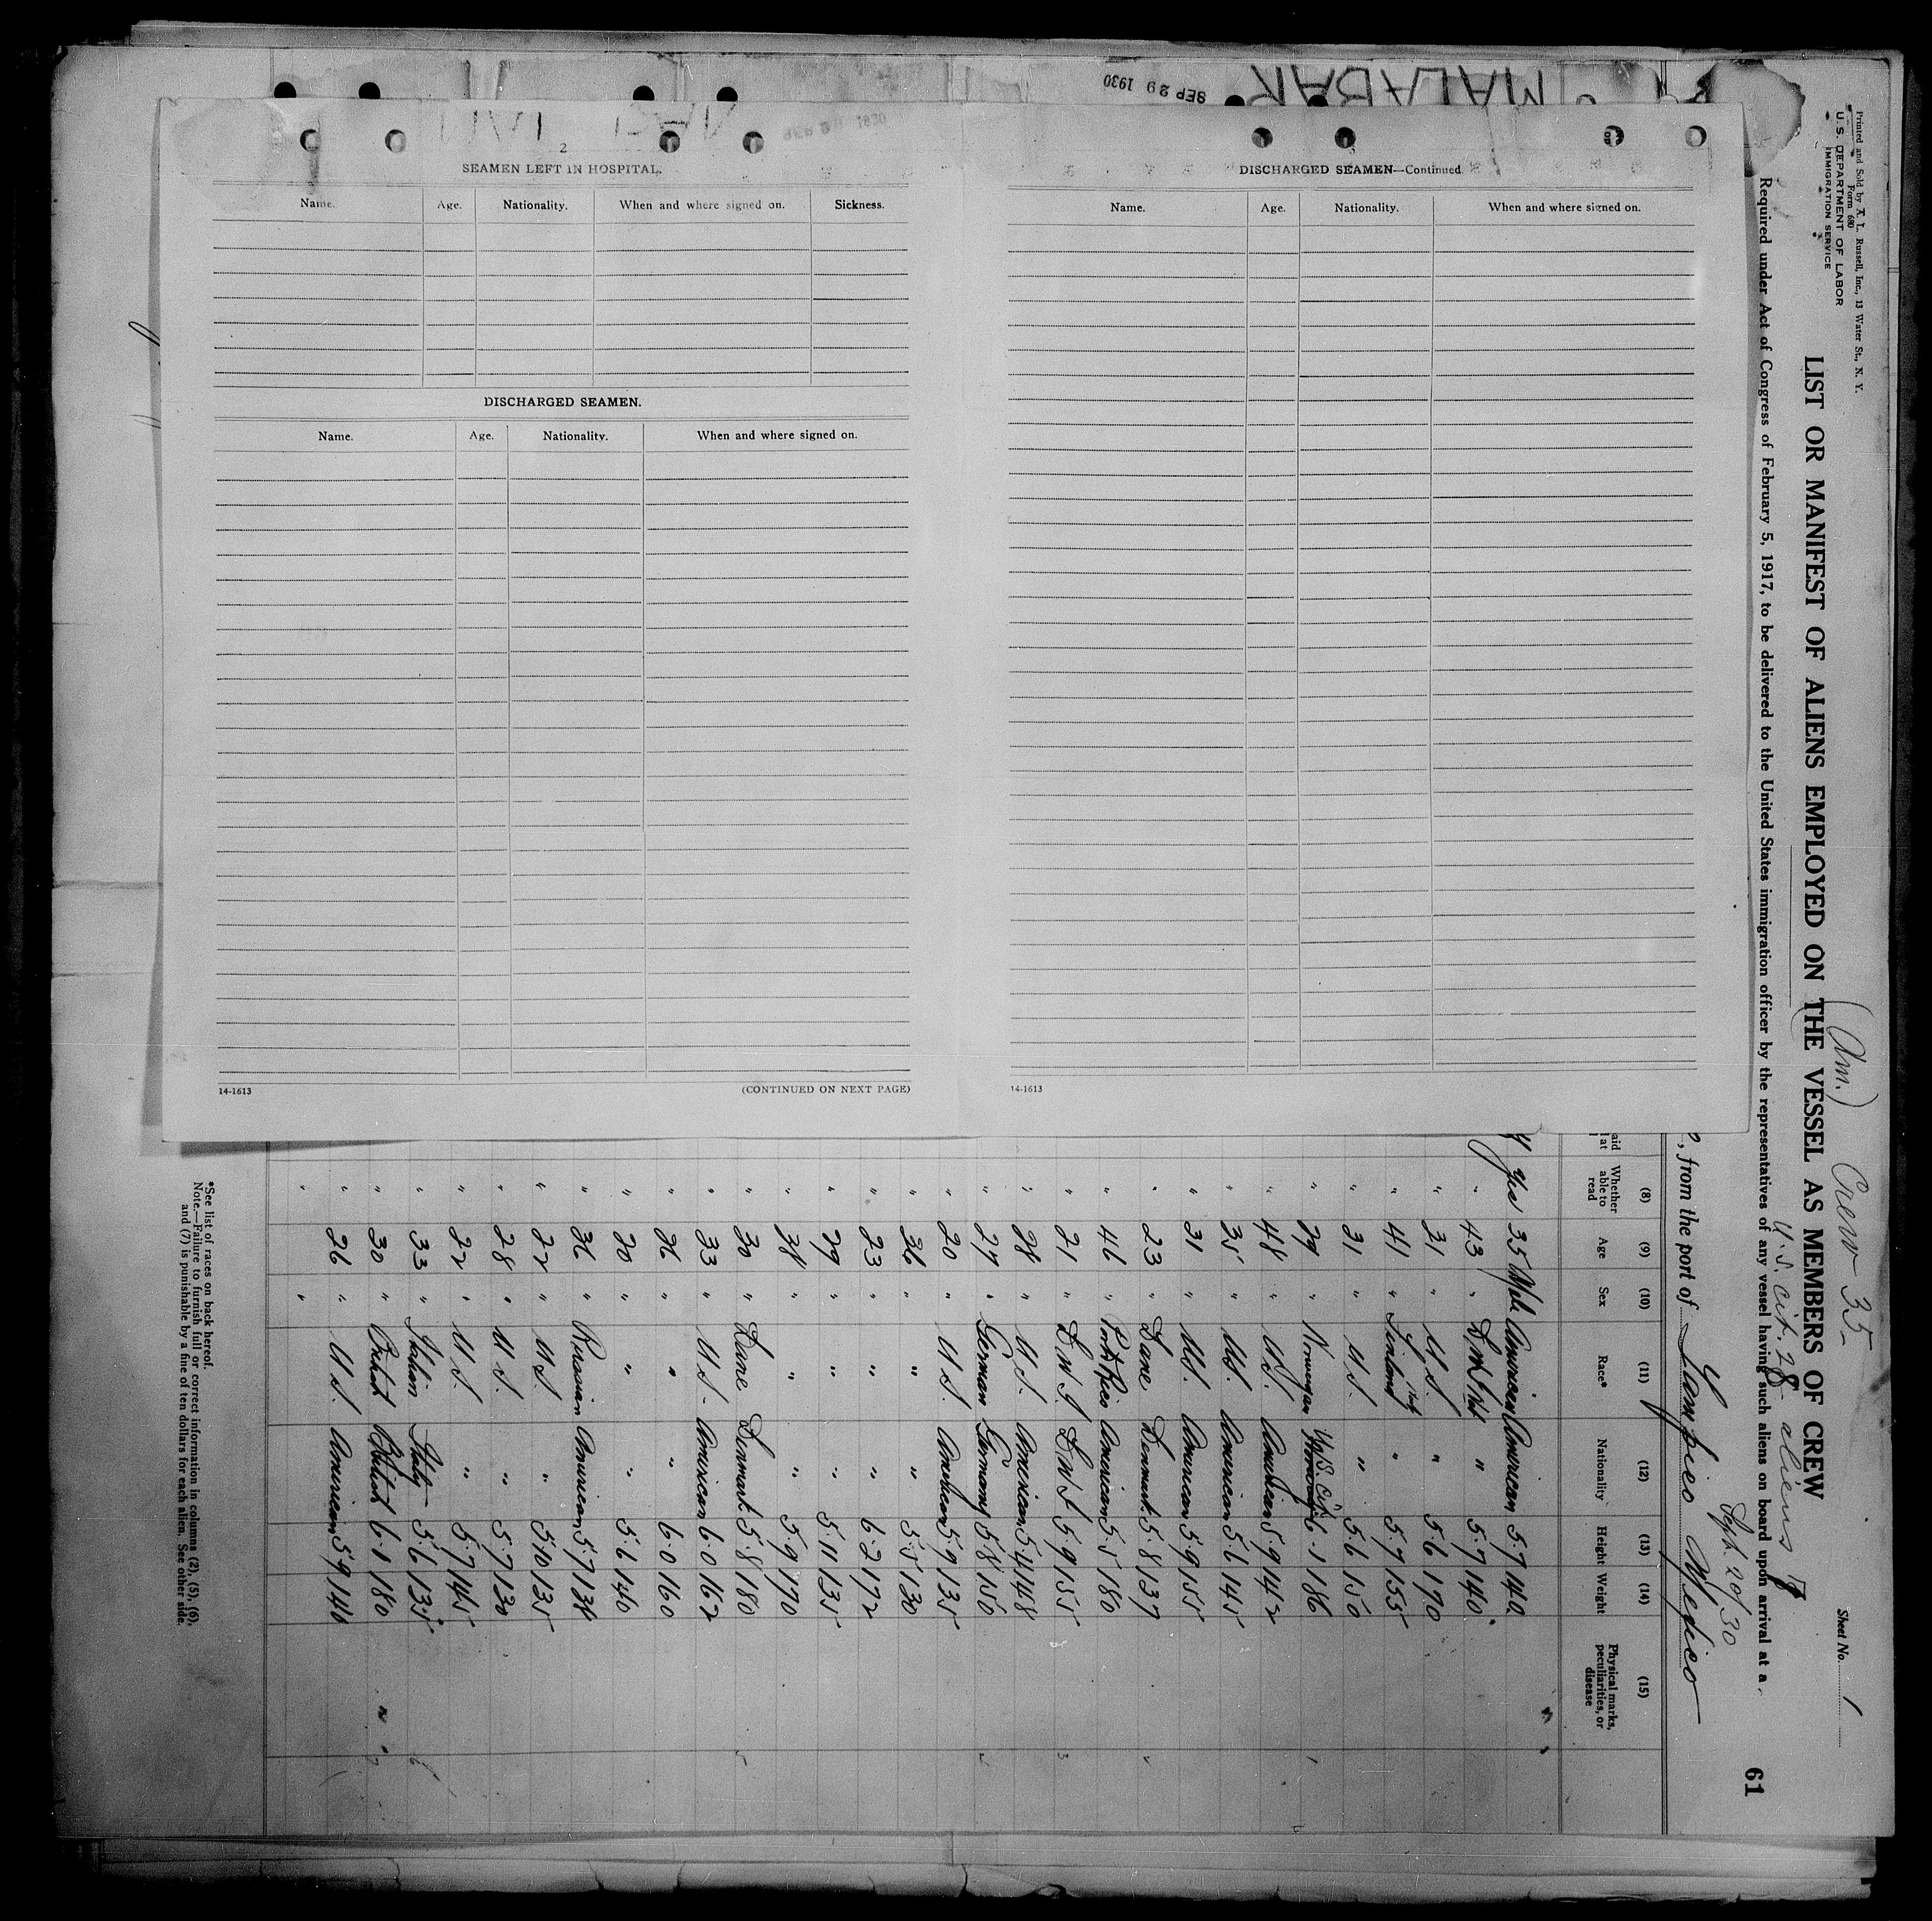 MALABAR
SEP 29 1930
2
SEAMEN LEFT IN HOSPITAL.
Name. Age. Nationality. When and where signed on. Sickness.
DISCHARGED SEAMEN.
Name. Age. Nationality. When and where signed on.
14-1613 (CONTINUED ON NEXT PAGE)
3
DISCHARGED SEAMEN—Continued
Name. Age. Nationality. When and where signed on.
14-1613
Printed and Sold by A. L. Russell, Inc., 13 Water St., N. Y.
Form 680
U.S. DEPARTMENT OF LABOR
IMMIGRATION SERVICE
(Am.) Crew 35
U.S. Cit. 28 aliens 7
Sheet No. 1
LIST OR MANIFEST OF ALIENS EMPLOYED ON THE VESSEL AS MEMBERS OF CREW
Required under Act of Congress of February 5, 1917, to be delivered to the United States immigration officer by the representatives of any vessel having such aliens on board upon arrival at a
61
Sept. 20/30
, from the port of Tampico Mexico
(8) (9) (10) (11) (12) (13) (14) (15)
Whether able to read Age Sex Race* Nationality Height Weight Physical marks, peculiarities, or disease
yes 35 Male American American 5.7 140
" 43 " " 5.7 140
" 31 " U S. " 5.6 170
" 41 " Finland " 5.7 155
" 31 " U S. " 5.6 150
" 39 " Norwegan U.S. Cit. 6-1 186
" 48 " U S. American 5.9 142
" 35 " U S. American 5.6 145
" 31 " U S. American 5.9 155
" 23 " Dane Denmark 5.8 137
" 46 " Port Rico American 5.5 180
" 21 " D W I D W I 5.9 155
" 28 " U S. American 5.4 148
" 27 " German Germany 5.8 150
" 20 " U S. American 5.9 135
" 36 " " " 5.5 130
" 23 " " " 6.2 172
" 29 " " " 5.11 135
" 38 " " " 5.9 170
" 30 " Dane Denmark 5.8 180
" 33 " U S. American 6.0 162
" 26 " " " 6.0 160
" 20 " " " 5.6 140
" 36 " Russian American 5.7 138
" 22 " U S. " 5.10 135
" 28 " U S. " 5.7 130
" 22 " U S. " 5.7 145
" 33 " Italian Italy 5.6 135
" 30 " British British 6.1 180
" 26 " U S. American 5.9 140
" "
*See list of races on back hereof.
Note.—Failure to furnish full or correct information in columns (2), (5), (6),
and (7) is punishable by a fine of ten dollars for each alien. See other side.